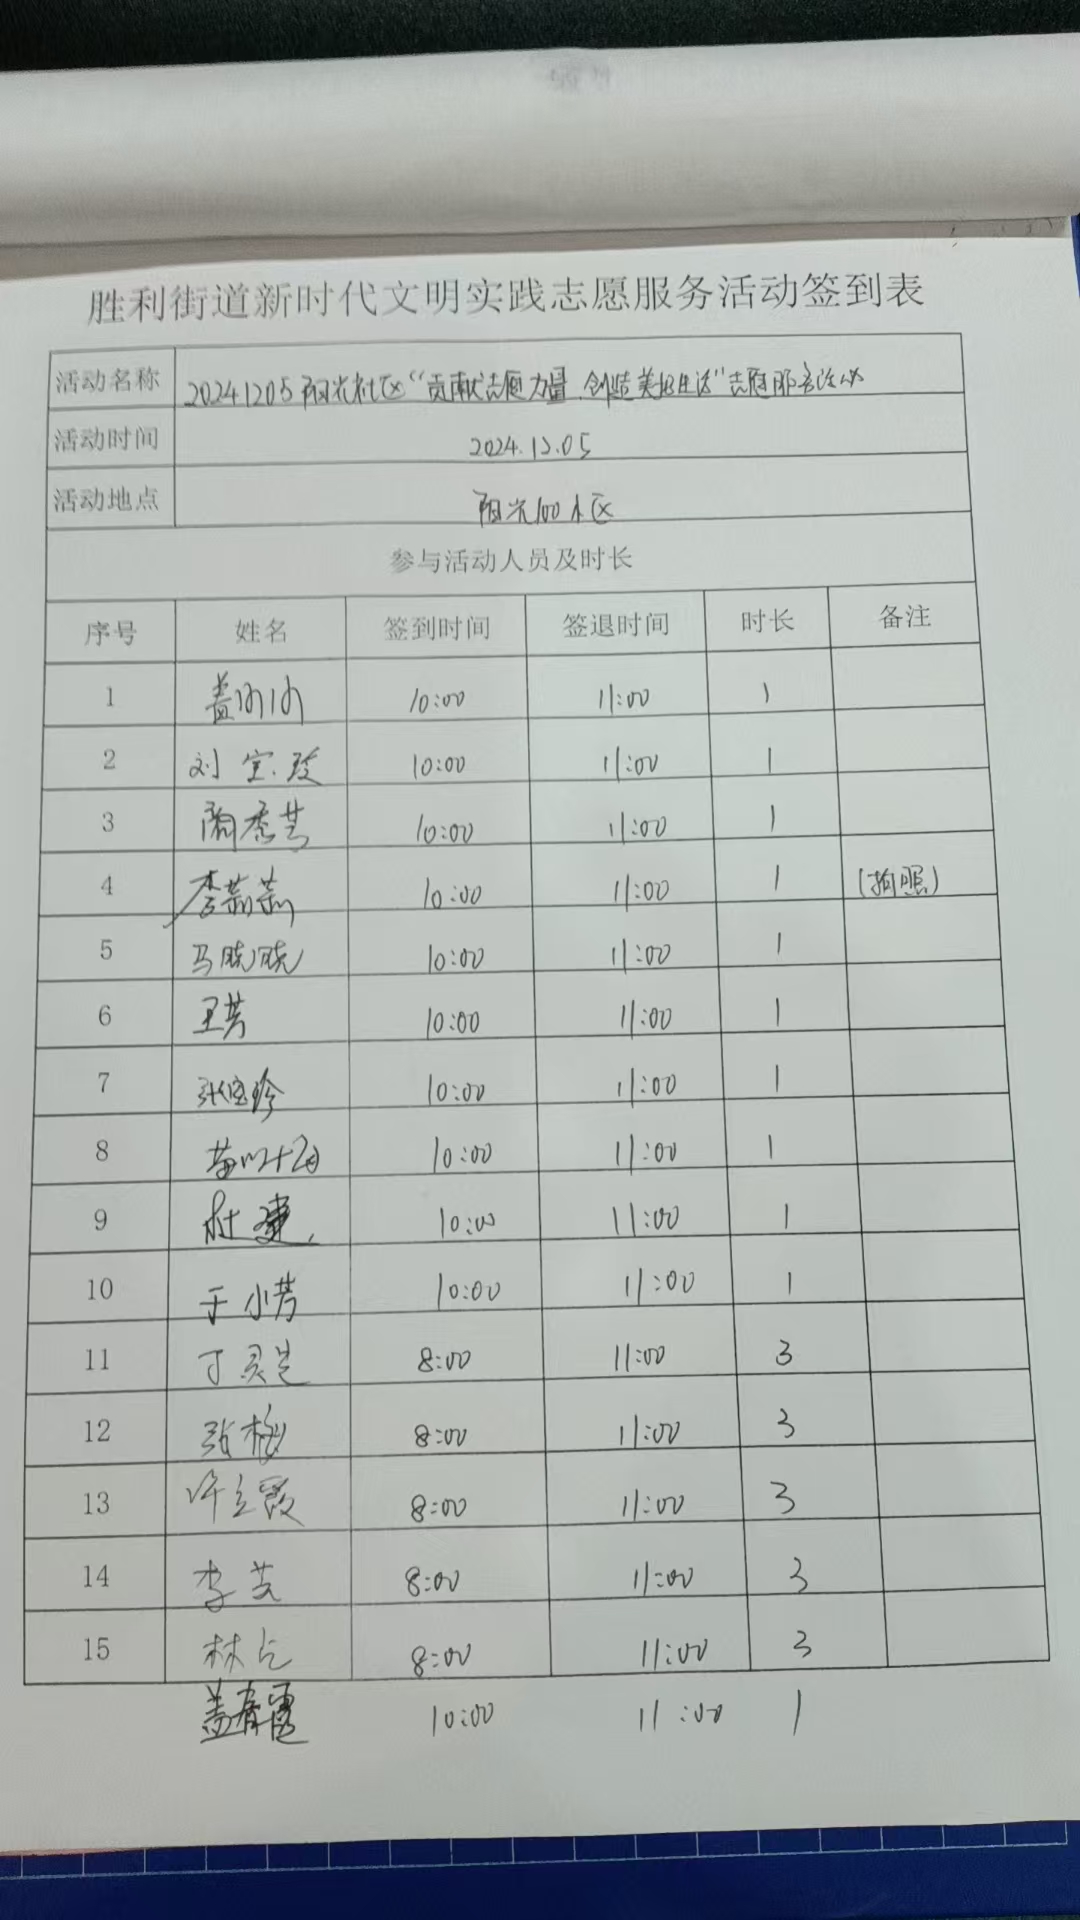 胜利街道新时代文明实践志愿服务活动签到表
活动名称 20241205阳光社区“贡献志愿力量、创造美好生活”志愿服务活动
活动时间 2024.12.05
活动地点 阳光100小区
参与活动人员及时长
序号 姓名 签到时间 签退时间 时长 备注
1 盖 10:00 11:00 1
2 刘宝 10:00 11:00 1
3 10:00 11:00 1
4 李茹茹 10:00 11:00 1 (拍照)
5 马晓晓 10:00 11:00 1
6 王芳 10:00 11:00 1
7 张宝珍 10:00 11:00 1
8 10:00 11:00 1
9 杜建 10:00 11:00 1
10 于小芳 10:00 11:00 1
11 丁灵芝 8:00 11:00 3
12 张梅 8:00 11:00 3
13 许立霞 8:00 11:00 3
14 李芸 8:00 11:00 3
15 林 8:00 11:00 3
盖春霞 10:00 11:00 1